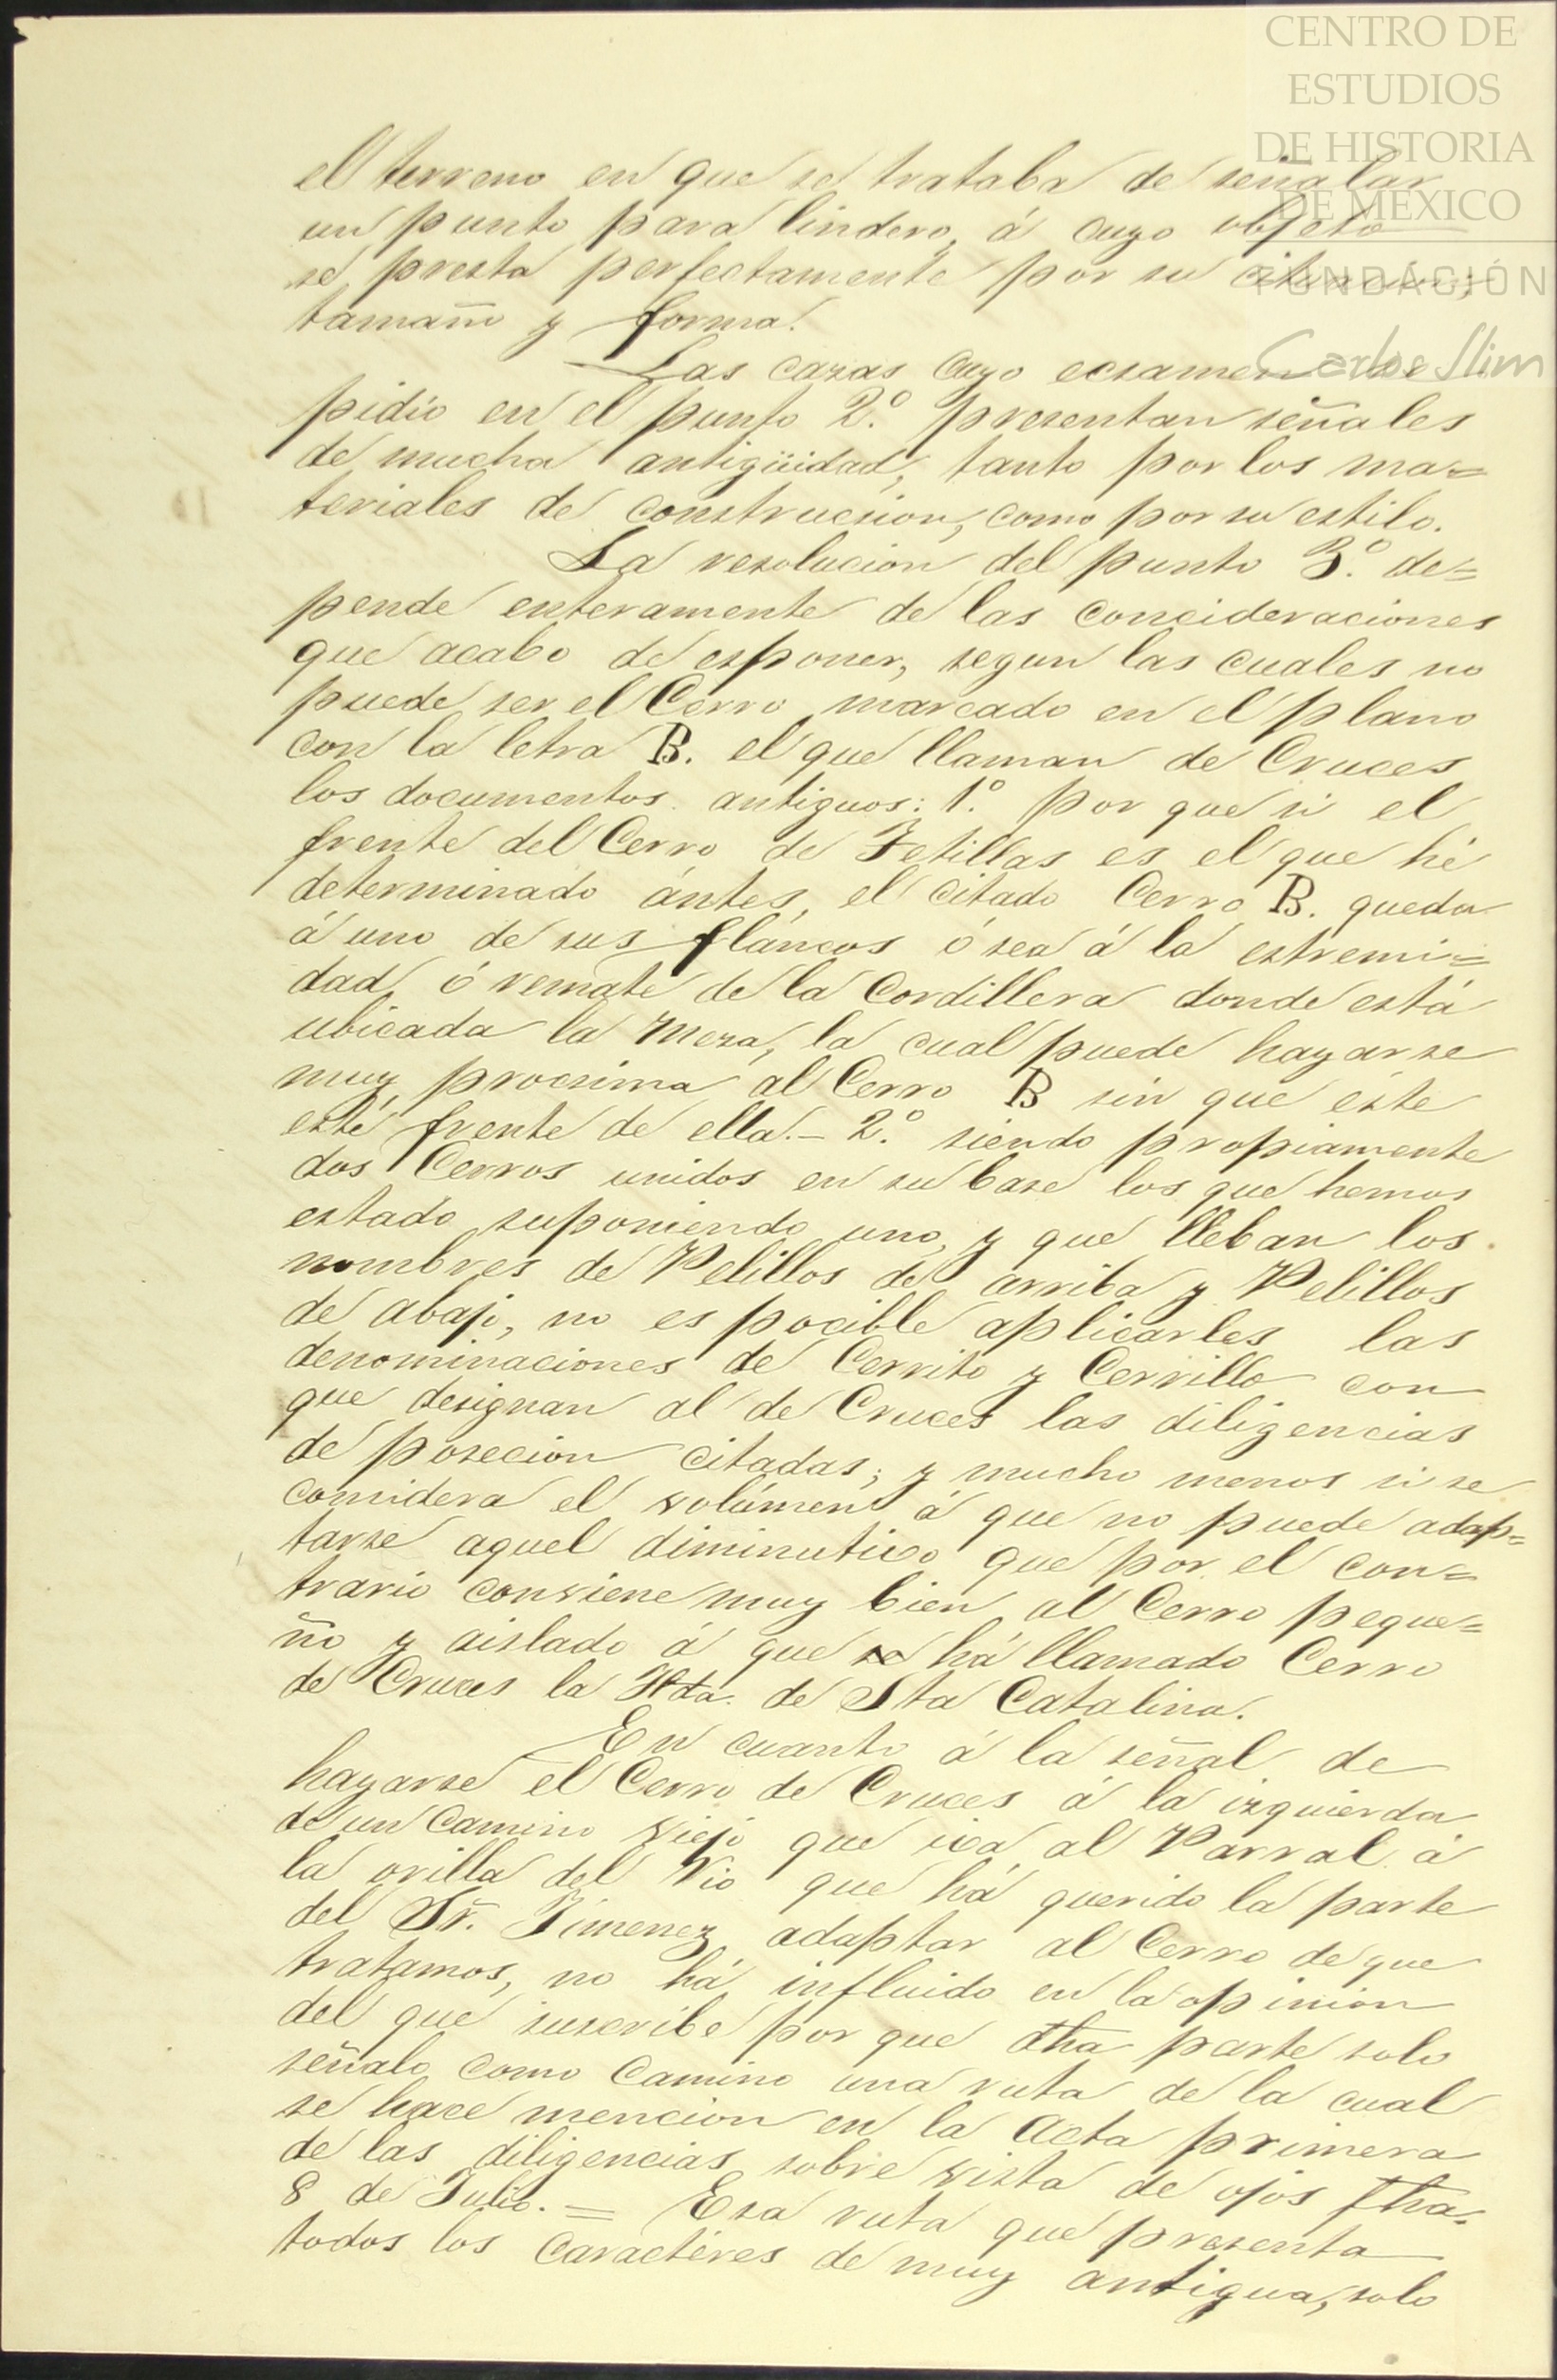 CENTRO DE
ESTUDIOS
DE HISTORIA
DE MÉXICO
FUNDACIÓN
Carlos Slim
el terreno en que se trataba de señalar
un punto para lindero, á cuyo objeto
se presta perfectamente por su
tamaño y forma.
Las cazas cuyo ecsamen se
pidió en el punto 2.º presentan señales
de mucha antigüidad, tanto por los ma=
teriales de construcsion, como por su estilo.
La resolucion del punto 3.º de=
pende enteramente de las concideraciones
que acabo de esponer, segun las cuales no
puede ser el Cerro marcado en el plano
con la letra B. el que llaman de Cruces
los documentos antiguos: 1.º por que si el
frente del Cerro de Tetillas es el que hé
determinado ántes, el citado Cerro B. queda
á uno de sus fláncos ó sea á la estremi=
dad, ó remate de la Cordillera donde está
ubicada la Meza, la cual puede hayarse
muy procsima al Cerro B sin que éste
esté frente de ella.- 2.º siendo propiamente
dos Cerros unidos en su base los que hemos
estado suponiendo uno, y que lleban los
nombres de Pelillos de arriba y Pelillos
de abajo, no es pocible aplicarles las
denominaciones de Cerrito y Cerrillo con
que designan al de Cruces las diligencias
de posecion citadas; y mucho menos si se
considera el volúmen á que no puede adap=
tarse aquel diminutivo que por el con=
trario conviene muy bien al Cerro peque=
ño y aislado á que se há llamado Cerro
de Cruces la Hda. de Sta Catalina.
En cuanto á la señal de
hayarse el Cerro de Cruces á la izquierda
de un Camino viejo que iva al Parral á
la orilla del Rio que há querido la parte
del Sr. Jimenez adaptar al Cerro de que
tratamos, no há influido en la opinion
del que suscribe por que dha parte solo
señalo como Camino una ruta de la cual
se hace mencion en la Acta primera
de las diligencias sobre vista de ojos fha.
8 de Julio. = Esa ruta que presenta
todos los caractéres de muy antigua, solo